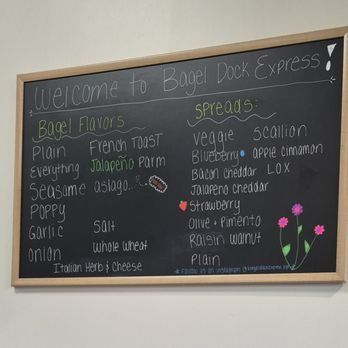 Welcome to Bagel Dock Express!
Bagel Flavors
Plain French Toast
Everything Jalapeño Parm
Seasame asiago...
Poppy
Garlic Salt
onion Whole Wheat
Italian Herb & Cheese
Spreads:
veggie scallion
Blueberry apple cinnamon
Bacon cheddar LOX
Jalapeno cheddar
Strawberry
Olive + Pimento
Raisin walnut
Plain
* Follow us on instagram